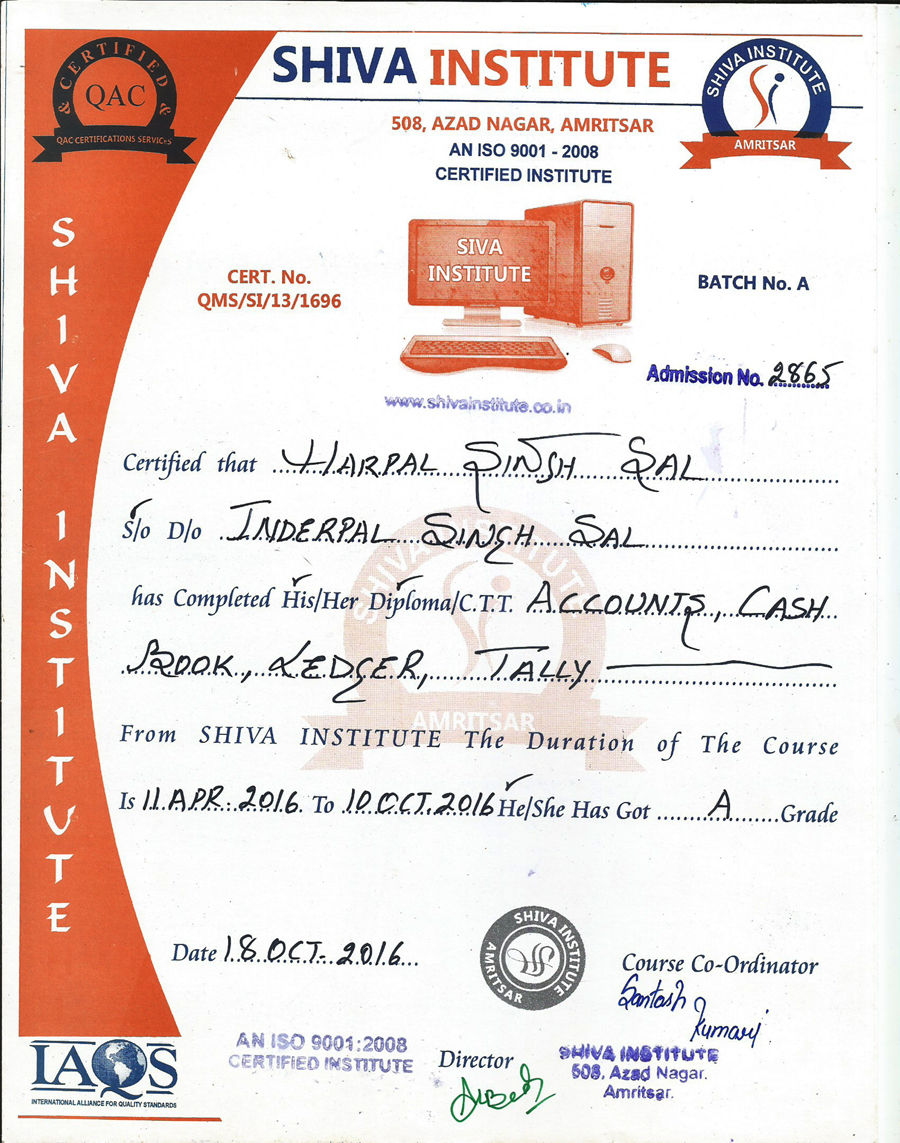 CERTIFIED
& &
QAC
QAC CERTIFICATIONS SERVICES
SHIVA INSTITUTE
508, AZAD NAGAR, AMRITSAR
AN ISO 9001 - 2008
CERTIFIED INSTITUTE
SHIVA INSTITUTE
AMRITSAR
SHIVA INSTITUTE
SIVA
INSTITUTE
CERT. No.
QMS/SI/13/1696
BATCH No. A
Admission No. 2865
www.shivainstitute.co.in
Certified that HARPAL SINGH SAL
S/o D/o INDERPAL SINGH SAL
has Completed His/Her Diploma/C.T.T. ACCOUNTS, CASH
BOOK, LEDGER, TALLY
SHIVA INSTITUTE
AMRITSAR
From SHIVA INSTITUTE The Duration of The Course
Is 11 APR. 2016. To 10 OCT. 2016 He/She Has Got A Grade
Date 18 OCT. 2016
SHIVA INSTITUTE
AMRITSAR
Course Co-Ordinator
Santash
Kumari
AN ISO 9001:2008
CERTIFIED INSTITUTE
Director
SHIVA INSTITUTE
508, Azad Nagar.
Amritsar.
IAQS
INTERNATIONAL ALLIANCE FOR QUALITY STANDARDS